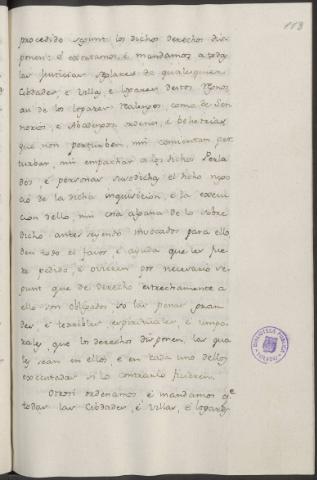 113
procedido segunt los dichos derechos dis
ponen: é exortamos, é mandamos a todas
las Justicias seglares de qualesquier
Cibdades, é Villas, é logares destos Regnos
asi de los logares Realengos, como de Sen
norios, é Abadengos, ordenes, é behetrias,
que non perturben, nin consientan per
turbar, nin empachar a los dichos Perla
dos, é personas susodichas el dicho nego
cio de la dicha inquisicion, é la execu
cion dello, nin cosa alguna de lo sobre
dicho antes seyendo invocados para ello
den todo el favor, é ayuda que les fue
re pedido, é ovieren por necesario se
gunt que de derecho estrechamente a
ello son obligados so las penas gran
des, é terribles espirituales, é tempo
rales que los derechos disponen, las qua
les sean en ellos é en cada uno dellos
executadas si lo contrario ficieren.
Otrosi ordenamos é mandamos qe
todas las Cibdades, é Villas, é logares
BIBLIOTECA PUBLICA
TOLEDO